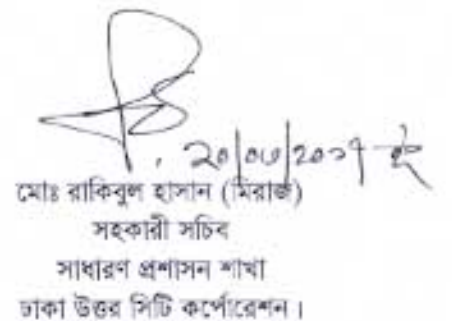 ২০/০৩/২০১৭ ইং
মোঃ রাকিবুল হাসান (মিরাজ)
সহকারী সচিব
সাধারণ প্রশাসন শাখা
ঢাকা উত্তর সিটি কর্পোরেশন।